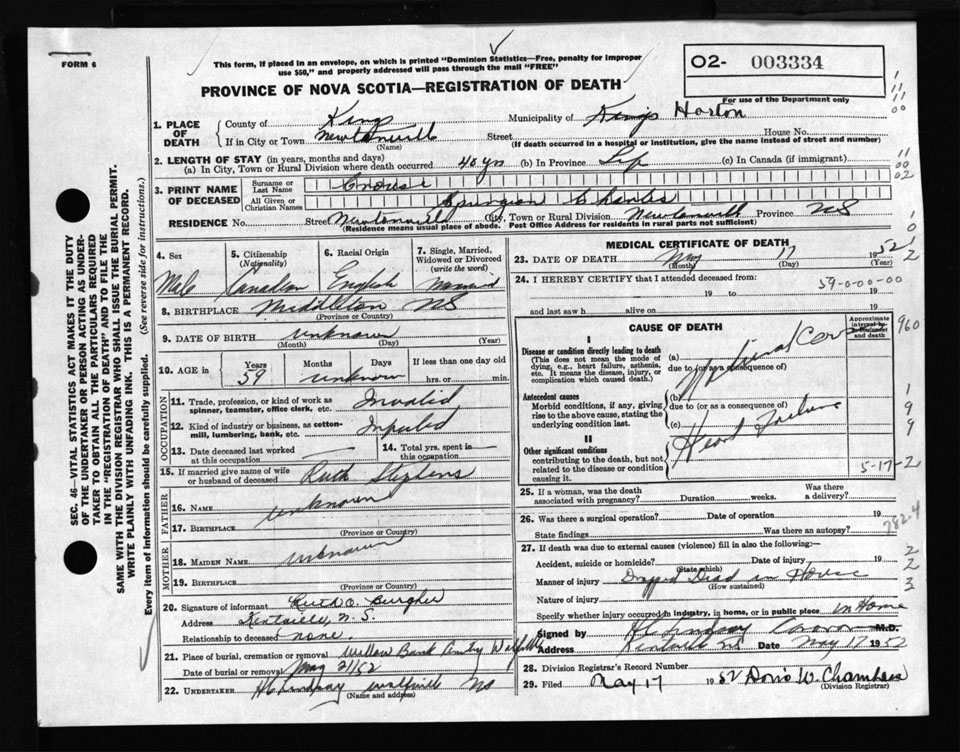 FORM 6
This form, if placed in an envelope, on which is printed "Dominion Statistics—Free, penalty for improper
use $50," and properly addressed will pass through the mail "FREE"
PROVINCE OF NOVA SCOTIA—REGISTRATION OF DEATH
O2- 003334
For use of the Department only
1. PLACE OF DEATH
County of Kings Municipality of Kings Horton
If in City or Town Newtonvill Street House No.
(Name) (If death occurred in a hospital or institution, give the name instead of street and number)
2. LENGTH OF STAY (in years, months and days)
(a) In City, Town or Rural Division where death occurred 40 yrs (b) In Province Life (c) In Canada (if immigrant)
3. PRINT NAME OF DECEASED
Surname or Last Name Crouse
All Given or Christian Names Spurgeon Charles
RESIDENCE No. Street Newtonvill City, Town or Rural Division Newtonvill Province NS
(Residence means usual place of abode. Post Office Address for residents in rural parts not sufficient)
4. Sex
Male
5. Citizenship
(Nationality)
Canadian
6. Racial Origin
English
7. Single, Married,
Widowed or Divorced
(write the word)
Married
8. BIRTHPLACE Middleton NS
(Province or Country)
9. DATE OF BIRTH unknown
(Month) (Day) (Year)
10. AGE in Years Months Days If less than one day old
59 unknown hrs. or min.
OCCUPATION
11. Trade, profession, or kind of work as
spinner, teamster, office clerk, etc. Invalid
12. Kind of industry or business, as cotton-
mill, lumbering, bank, etc.
13. Date deceased last worked
at this occupation
14. Total yrs. spent in
this occupation
15. If married give name of wife
or husband of deceased Ruth Stephens
FATHER
16. NAME unknown
17. BIRTHPLACE
(Province or Country)
MOTHER
18. MAIDEN NAME unknown
19. BIRTHPLACE
(Province or Country)
20. Signature of informant
Address Kentville, N.S.
Relationship to deceased none.
21. Place of burial, cremation or removal Willow Bank
Date of burial or removal May 21/52
22. UNDERTAKER H C Lindsay Wolfville NS
(Name and address)
MEDICAL CERTIFICATE OF DEATH
23. DATE OF DEATH May 17 1952
(Month) (Day) (Year)
24. I HEREBY CERTIFY that I attended deceased from:
59-0-00-00
19 to 19
and last saw h alive on 19
CAUSE OF DEATH
Approximate interval between onset and death
I
Disease or condition directly leading to death
(This does not mean the mode of
dying, e.g., heart failure, asthenia,
etc. It means the disease, injury, or
complication which caused death.)
(a)
due to (or as a consequence of)
Antecedent causes
Morbid conditions, if any, giving
rise to the above cause, stating the
underlying condition last.
(b)
due to (or as a consequence of)
(c)
Heart Failure
II
Other significant conditions
contributing to the death, but not
related to the disease or condition
causing it.
5-17-2
25. If a woman, was the death
associated with pregnancy? Duration weeks. Was there
a delivery?
26. Was there a surgical operation? Date of operation 19
State findings Was there an autopsy?
782.4
27. If death was due to external causes (violence) fill in also the following:—
Accident, suicide or homicide? Date of injury 19
(State which)
Manner of injury Dropped Dead in House
(How sustained)
Nature of injury
Specify whether injury occurred in industry, in home, or in public place in Home
Signed by H C Lindsay Coroner M.D.
Address Kentville NS Date May 17 1952
28. Division Registrar's Record Number
29. Filed May 17 1952 Doris W. Chambers
(Division Registrar)
SEC. 46—VITAL STATISTICS ACT MAKES IT THE DUTY
OF THE UNDERTAKER OR PERSON ACTING AS UNDER-
TAKER TO OBTAIN ALL THE PARTICULARS REQUIRED
IN THE "REGISTRATION OF DEATH" AND TO FILE THE
SAME WITH THE DIVISION REGISTRAR WHO SHALL ISSUE THE BURIAL PERMIT.
WRITE PLAINLY WITH UNFADING INK. THIS IS A PERMANENT RECORD.
Every item of information should be carefully supplied. (See reverse side for instructions.)